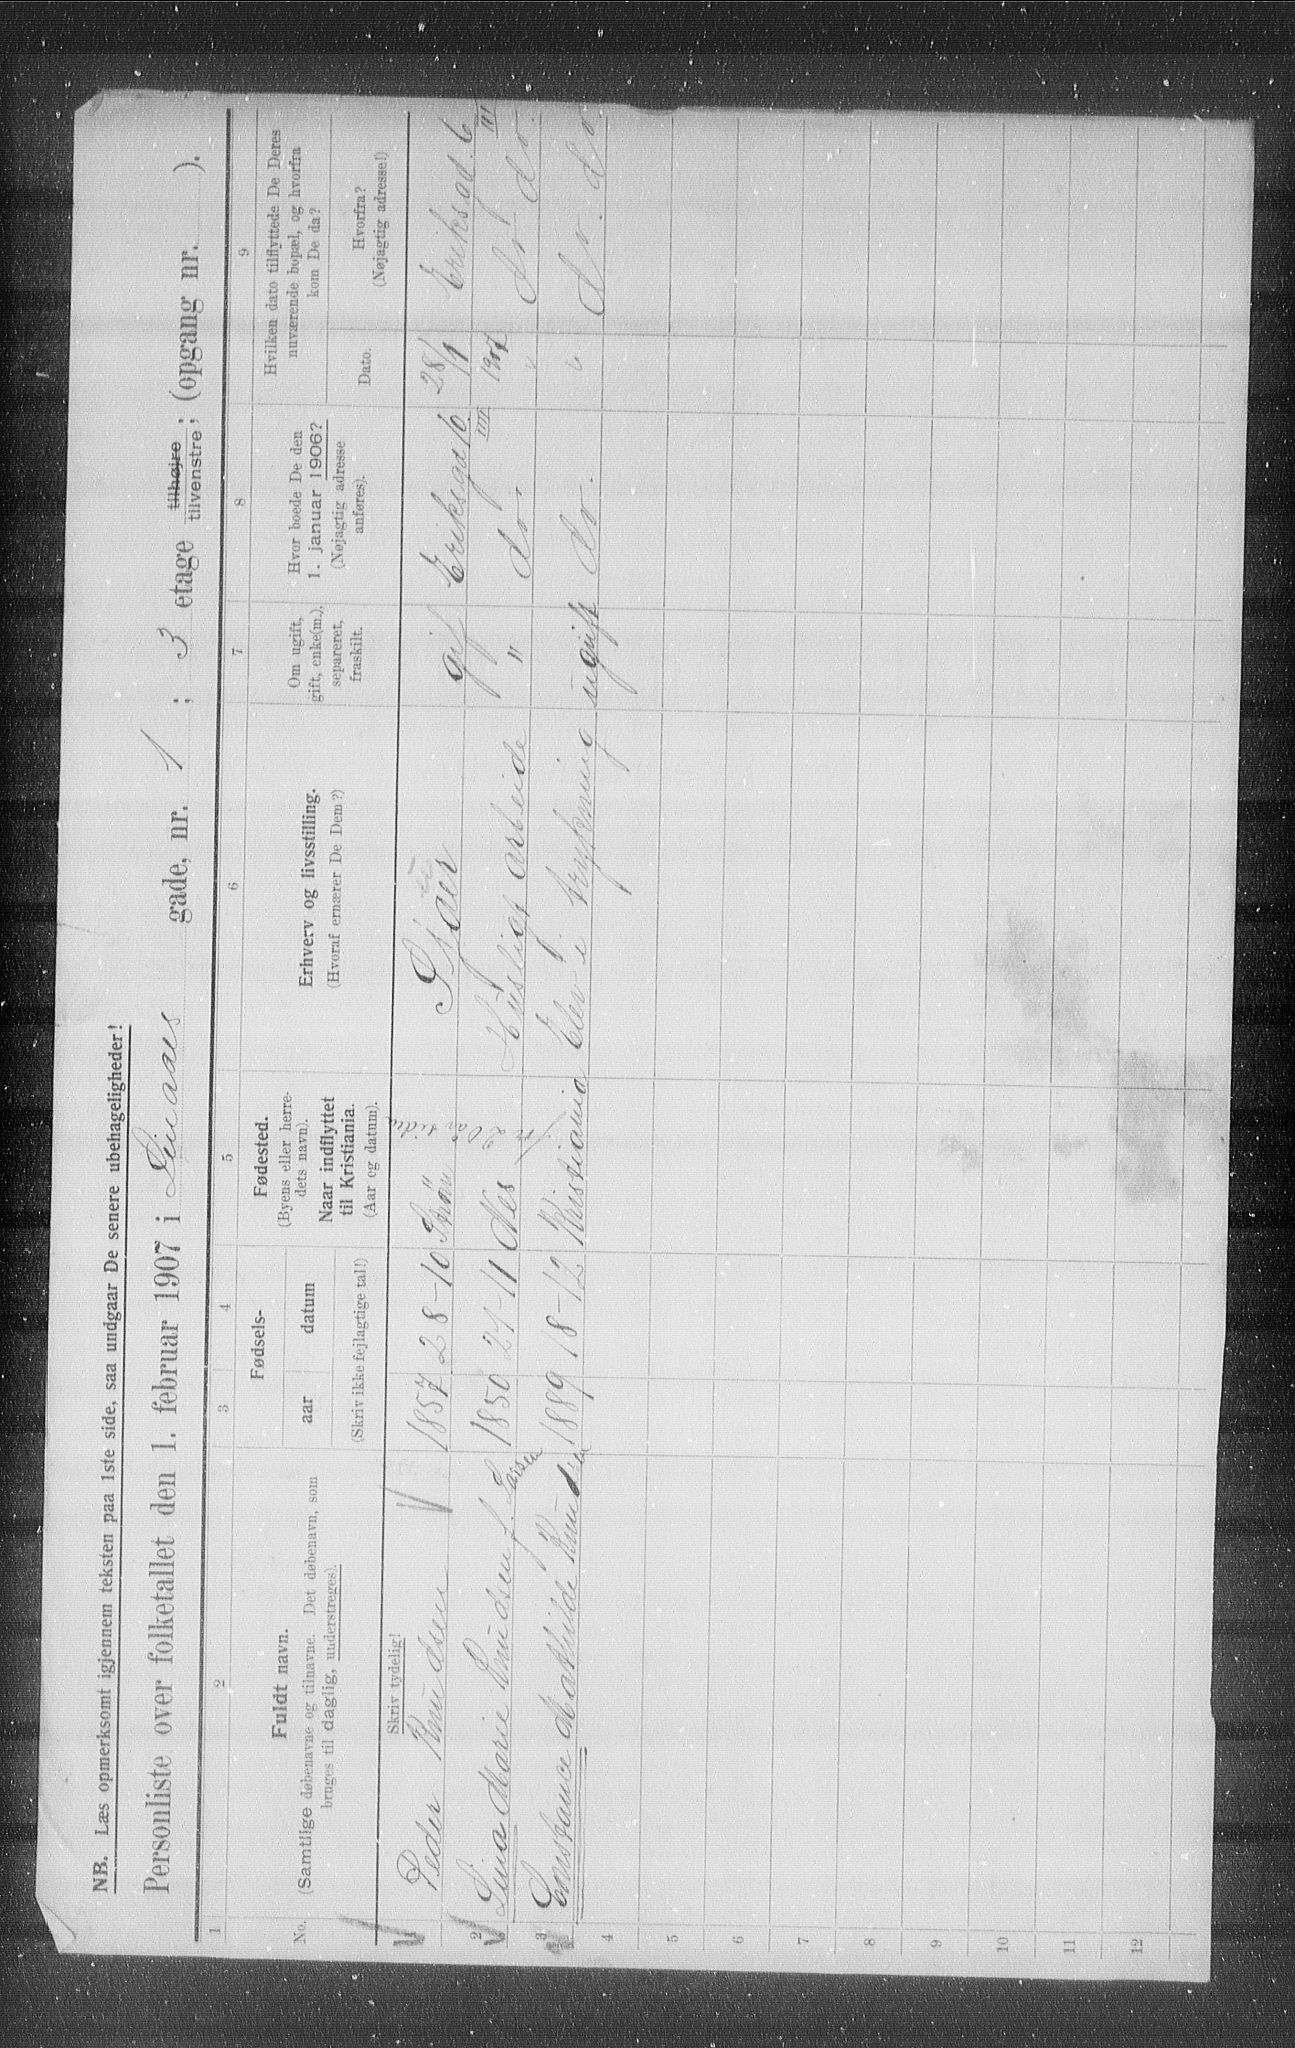 NB. Læs opmerksomt igjennem teksten paa 1ste side, saa undgaar De senere ubehageligheder!
Personliste over folketallet den 1. februar 1907 i gade, nr. 1 ; 3 etage tilhøjre tilvenstre ; (opgang nr. ).
1 2 3 4 5 6 7 8 9
No.
Fuldt navn.
(Samtlige døbenavne og tilnavne. Det døbenavn, som
bruges til daglig, understreges).
Fødsels-
aar datum
(Skriv ikke fejlagtige tal!)
Fødested.
(Byens eller herre-
dets navn).
Naar indflyttet
til Kristiania.
(Aar og datum).
Erhverv og livsstilling.
(Hvoraf ernærer De Dem?)
Om ugift,
gift, enke(m.),
separeret,
fraskilt.
Hvor boede De den
1. januar 1906?
(Nøjagtig adresse
anføres).
Hvilken dato tilflyttede De Deres
nuværende bopæl, og hvorfra
kom De da?
Dato.
Hvorfra?
(Nøjagtig adresse!)
Skriv tydelig!
1 Peder Knudsen 1857 28-10 gif Eriksgd 6. IIII 28/1 1907 Eriksgd. 6 III
2 Lina Marie Knudsen f. Larsen 1850 21-11 Nes Husligt arbeide " do. " do do.
3 Constance Mathilde Knudsen 1889 18-12 Kristiania Elev i trykning ugift do. " do. do.
4
5
6
7
8
9
10
11
12